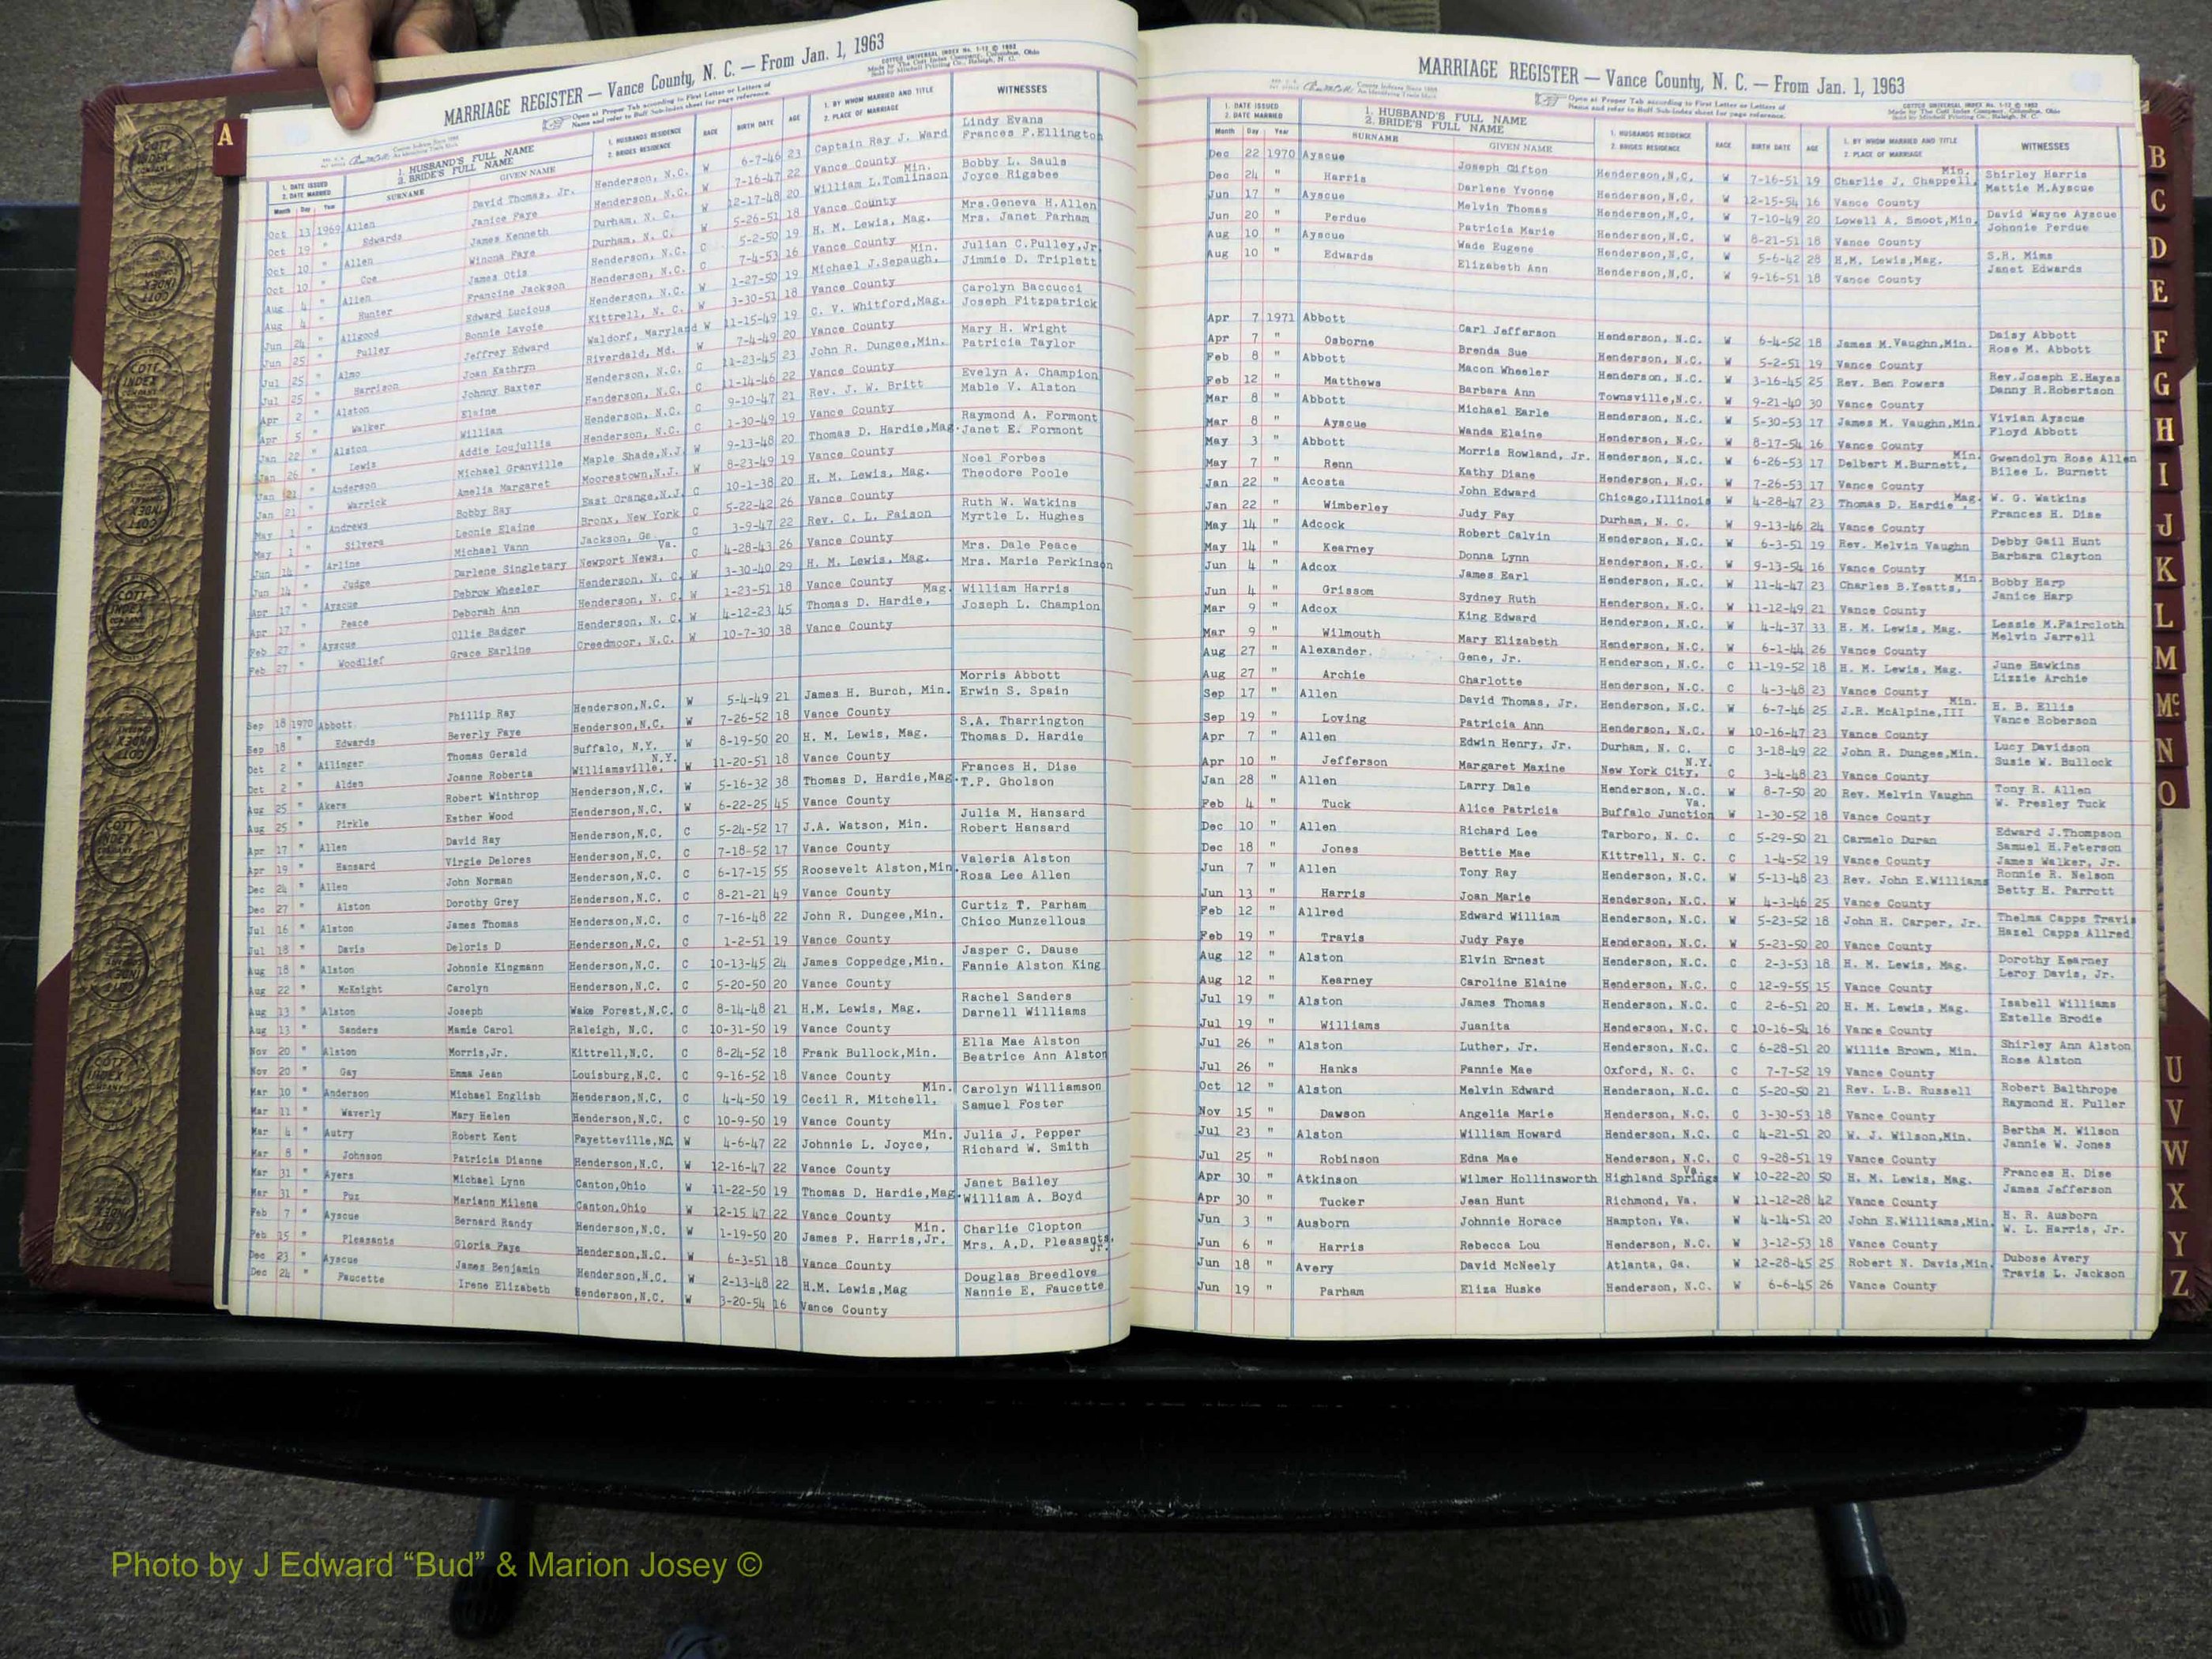 MARRIAGE REGISTER — Vance County, N. C. — From Jan. 1, 1963
Open at Proper Tab according to First Letter or Letters of
Name and refer to Buff Sub-Index sheet for page reference.
COTTCO UNIVERSAL INDEX No. 1-12 © 1952
Made by The Cott Index Company, Columbus, Ohio
Sold by Mitchell Printing Co., Raleigh, N. C.
1. DATE ISSUED 1. HUSBAND'S FULL NAME 1. HUSBANDS RESIDENCE RACE BIRTH DATE AGE 1. BY WHOM MARRIED AND TITLE WITNESSES
2. DATE MARRIED 2. BRIDE'S FULL NAME 2. BRIDES RESIDENCE 2. PLACE OF MARRIAGE
Month Day Year SURNAME GIVEN NAME
Oct 13 1969 Allen David Thomas, Jr. Henderson, N.C. W 6-7-46 23 Captain Ray J. Ward Lindy Evans
Oct 19 " Edwards Janice Faye Henderson, N.C. W 7-16-47 22 Vance County Frances F.Ellington
Oct 10 " Allen James Kenneth Durham, N. C. W 12-17-48 20 William L.Tomlinson Min. Bobby L. Sauls
Oct 10 " Coe Winona Faye Durham, N. C. W 5-26-51 18 Vance County Joyce Rigsbee
Aug 4 " Allen James Otis Henderson, N.C. C 5-2-50 19 H. M. Lewis, Mag. Mrs.Geneva H.Allen
Aug 4 " Hunter Francine Jackson Henderson, N.C. C 7-4-53 16 Vance County Mrs. Janet Parham
Jun 24 " Allgood Edward Lucious Henderson, N.C. W 1-27-50 19 Michael J.Sepaugh, Min. Julian C.Pulley,Jr.
Jun 25 " Pulley Bonnie Lavoie Kittrell, N. C. W 3-30-51 18 Vance County Jimmie D. Triplett
Jul 25 " Almo Jeffrey Edward Waldorf, Maryland W 11-15-49 19 C. V. Whitford,Mag. Carolyn Baccucci
Jul 25 " Harrison Joan Kathryn Riverdald, Md. W 7-4-49 20 Vance County Joseph Fitzpatrick
Apr 2 " Alston Johnny Baxter Henderson, N.C. C 11-23-45 23 John R. Dungee,Min. Mary H. Wright
Apr 5 " Walker Elaine Henderson, N.C. C 11-14-46 22 Vance County Patricia Taylor
Jan 22 " Alston Willian Henderson, N.C. C 9-10-47 21 Rev. J. W. Britt Evelyn A. Champion
Jan 26 " Lewis Addie Loujullia Henderson, N.C. C 1-30-49 19 Vance County Mable V. Alston
Jan 21 " Anderson Michael Granville Maple Shade,N.J. W 9-13-48 20 Thomas D. Hardie,Mag. Raymond A. Formont
Jan 21 " Warrick Amelia Margaret Moorestown,N.J. W 8-23-49 19 Vance County Janet E. Formont
May 1 " Andrews Bobby Ray East Orange,N.J. C 10-1-38 20 H. M. Lewis, Mag. Noel Forbes
May 1 " Silvers Leonie Elaine Bronx, New York C 5-22-42 26 Vance County Theodore Poole
Jun 14 " Arline Michael Vann Jackson, Ga. C 3-9-47 22 Rev. C. L. Faison Ruth W. Watkins
Jun 14 " Judge Darlene Singletary Newport News, Va. C 4-28-43 26 Vance County Myrtle L. Hughes
Apr 17 " Ayscue Debrow Wheeler Henderson, N. C. W 3-30-40 29 H. M. Lewis, Mag. Mrs. Dale Peace
Apr 17 " Peace Deborah Ann Henderson, N. C. W 1-23-51 18 Vance County Mrs. Marie Perkinson
Feb 27 " Ayscue Ollie Badger Henderson, N. C. W 4-12-23 45 Thomas D. Hardie, Mag. William Harris
Feb 27 " Woodlief Grace Earline Creedmoor, N.C. W 10-7-30 38 Vance County Joseph L. Champion
Sep 18 1970 Abbott Phillip Ray Henderson,N.C. W 5-4-49 21 James H. Burch, Min. Morris Abbott
Sep 18 " Edwards Beverly Faye Henderson,N.C. W 7-26-52 18 Vance County Erwin S. Spain
Oct 2 " Ailinger Thomas Gerald Buffalo, N.Y. W 8-19-50 20 H. M. Lewis, Mag. S.A. Tharrington
Oct 2 " Alden Joanne Roberta Williamsville, N.Y. W 11-20-51 18 Vance County Thomas D. Hardie
Aug 25 " Akers Robert Winthrop Henderson,N.C. W 5-16-32 38 Thomas D. Hardie,Mag. Frances H. Dise
Aug 25 " Pirkle Esther Wood Henderson,N.C. W 6-22-25 45 Vance County T.P. Gholson
Apr 17 " Allen David Ray Henderson,N.C. C 5-24-52 17 J.A. Watson, Min. Julia M. Hansard
Apr 19 " Hansard Virgie Delores Henderson,N.C. C 7-18-52 17 Vance County Robert Hansard
Dec 24 " Allen John Norman Henderson,N.C. C 6-17-15 55 Roosevelt Alston,Min. Valeria Alston
Dec 27 " Alston Dorothy Grey Henderson,N.C. C 8-21-21 49 Vance County Rosa Lee Allen
Jul 16 " Alston James Thomas Henderson,N.C. C 7-16-48 22 John R. Dungee,Min. Curtiz T. Parham
Jul 18 " Davis Deloris D Henderson,N.C. C 1-2-51 19 Vance County Chico Munzellous
Aug 18 " Alston Johnnie Kingmann Henderson,N.C. C 10-13-45 24 James Coppedge,Min. Jasper C. Dause
Aug 22 " McKnight Carolyn Henderson,N.C. C 5-20-50 20 Vance County Fannie Alston King
Aug 13 " Alston Joseph Wake Forest,N.C. C 8-14-48 21 H.M. Lewis, Mag. Rachel Sanders
Aug 13 " Sanders Mamie Carol Raleigh, N.C. C 10-31-50 19 Vance County Darnell Williams
Nov 20 " Alston Morris,Jr. Kittrell,N.C. C 8-24-52 18 Frank Bullock,Min. Ella Mae Alston
Nov 20 " Gay Emma Jean Louisburg,N.C. C 9-16-52 18 Vance County Beatrice Ann Alston
Mar 10 " Anderson Michael English Henderson,N.C. C 4-4-50 19 Cecil R. Mitchell, Min. Carolyn Williamson
Mar 11 " Waverly Mary Helen Henderson,N.C. C 10-9-50 19 Vance County Samuel Foster
Mar 4 " Autry Robert Kent Fayetteville,NC. W 4-6-47 22 Johnnie L. Joyce, Min. Julia J. Pepper
Mar 8 " Johnson Patricia Dianne Henderson,N.C. W 12-16-47 22 Vance County Richard W. Smith
Mar 31 " Ayers Michael Lynn Canton,Ohio W 11-22-50 19 Thomas D. Hardie,Mag. Janet Bailey
Mar 31 " Puz Mariann Milena Canton,Ohio W 12-15 47 22 Vance County William A. Boyd
Feb 7 " Ayscue Bernard Randy Henderson,N.C. W 1-19-50 20 James P. Harris,Jr. Min. Charlie Clopton
Feb 15 " Pleasants Gloria Faye Henderson,N.C. W 6-3-51 18 Vance County Mrs. A.D. Pleasants, Jr.
Dec 23 " Ayscue James Benjamin Henderson,N.C. W 2-13-48 22 H.M. Lewis,Mag Douglas Breedlove
Dec 24 " Faucette Irene Elizabeth Henderson,N.C. W 3-20-54 16 Vance County Nannie E. Faucette
MARRIAGE REGISTER — Vance County, N. C. — From Jan. 1, 1963
Open at Proper Tab according to First Letter or Letters of
Name and refer to Buff Sub-Index sheet for page reference.
COTTCO UNIVERSAL INDEX No. 1-12 © 1952
Made by The Cott Index Company, Columbus, Ohio
Sold by Mitchell Printing Co., Raleigh, N. C.
1. DATE ISSUED 1. HUSBAND'S FULL NAME 1. HUSBANDS RESIDENCE RACE BIRTH DATE AGE 1. BY WHOM MARRIED AND TITLE WITNESSES
2. DATE MARRIED 2. BRIDE'S FULL NAME 2. BRIDES RESIDENCE 2. PLACE OF MARRIAGE
Month Day Year SURNAME GIVEN NAME
Dec 22 1970 Ayscue Joseph Clifton Henderson,N.C. W 7-16-51 19 Charlie J. Chappell, Min. Shirley Harris
Dec 24 " Harris Darlene Yvonne Henderson,N.C. W 12-15-54 16 Vance County Mattie M.Ayscue
Jun 17 " Ayscue Melvin Thomas Henderson,N.C. W 7-10-49 20 Lowell A. Smoot,Min. David Wayne Ayscue
Jun 20 " Perdue Patricia Marie Henderson,N.C. W 8-21-51 18 Vance County Johnnie Perdue
Aug 10 " Ayscue Wade Eugene Henderson,N.C. W 5-6-42 28 H.M. Lewis,Mag. S.R. Mims
Aug 10 " Edwards Elizabeth Ann Henderson,N.C. W 9-16-51 18 Vance County Janet Edwards
Apr 7 1971 Abbott Carl Jefferson Henderson, N.C. W 6-4-52 18 James M.Vaughn,Min. Daisy Abbott
Apr 7 " Osborne Brenda Sue Henderson, N.C. W 5-2-51 19 Vance County Rose M. Abbott
Feb 8 " Abbott Macon Wheeler Henderson, N.C. W 3-16-45 25 Rev. Ben Powers Rev.Joseph E.Hayes
Feb 12 " Matthews Barbara Ann Townsville,N.C. W 9-21-40 30 Vance County Danny R.Robertson
Mar 8 " Abbott Michael Earle Henderson, N.C. W 5-30-53 17 James M. Vaughn,Min. Vivian Ayscue
Mar 8 " Ayscue Wanda Elaine Henderson, N.C. W 8-17-54 16 Vance County Floyd Abbott
May 3 " Abbott Morris Rowland, Jr. Henderson, N.C. W 6-26-53 17 Delbert M.Burnett, Min. Gwendolyn Rose Allen
May 7 " Renn Kathy Diane Henderson, N.C. W 7-26-53 17 Vance County Bilee L. Burnett
Jan 22 " Acosta John Edward Chicago,Illinois W 4-28-47 23 Thomas D. Hardie, Mag. W. G. Watkins
Jan 22 " Wimberley Judy Fay Durham, N. C. W 9-13-46 24 Vance County Frances H. Dise
May 14 " Adcock Robert Calvin Henderson, N.C. W 6-3-51 19 Rev. Melvin Vaughn Debby Gail Hunt
May 14 " Kearney Donna Lynn Henderson, N.C. W 9-13-54 16 Vance County Barbara Clayton
Jun 4 " Adcox James Earl Henderson, N.C. W 11-4-47 23 Charles B.Yeatts, Min. Bobby Harp
Jun 4 " Grissom Sydney Ruth Henderson, N.C. W 11-12-49 21 Vance County Janice Harp
Mar 9 " Adcox King Edward Henderson, N.C. W 4-4-37 33 H. M. Lewis, Mag. Lessie M.Faircloth
Mar 9 " Wilmouth Mary Elizabeth Henderson, N.C. W 6-1-44 26 Vance County Melvin Jarrell
Aug 27 " Alexander Gene, Jr. Henderson, N.C. C 11-19-52 18 H. M. Lewis, Mag. June Hawkins
Aug 27 " Archie Charlotte Henderson, N.C. C 4-3-48 23 Vance County Lizzie Archie
Sep 17 " Allen David Thomas, Jr. Henderson, N.C. W 6-7-46 25 J.R. McAlpine,III Min. H. B. Ellis
Sep 19 " Loving Patricia Ann Henderson, N.C. W 10-16-47 23 Vance County Vance Roberson
Apr 7 " Allen Edwin Henry, Jr. Durham, N. C. C 3-18-49 22 John R. Dungee,Min. Lucy Davidson
Apr 10 " Jefferson Margaret Maxine New York City, N.Y. C 3-4-48 23 Vance County Susie W. Bullock
Jan 28 " Allen Larry Dale Henderson, N.C. W 8-7-50 20 Rev. Melvin Vaughn Tony R. Allen
Feb 4 " Tuck Alice Patricia Buffalo Junction Va. W 1-30-52 18 Vance County W. Presley Tuck
Dec 10 " Allen Richard Lee Tarboro, N. C. C 5-29-50 21 Carmelo Duran Edward J.Thompson
Dec 18 " Jones Bettie Mae Kittrell, N. C. C 1-4-52 19 Vance County Samuel H.Peterson James Walker, Jr.
Jun 7 " Allen Tony Ray Henderson, N.C. W 5-13-48 23 Rev. John E.Williams Ronnie R. Nelson
Jun 13 " Harris Joan Marie Henderson, N.C. W 4-3-46 25 Vance County Betty H. Parrott
Feb 12 " Allred Edward William Henderson, N.C. W 5-23-52 18 John H. Carper, Jr. Thelma Capps Travis
Feb 19 " Travis Judy Faye Henderson, N.C. W 5-23-50 20 Vance County Hazel Capps Allred
Aug 12 " Alston Elvin Ernest Henderson, N.C. C 2-3-53 18 H. M. Lewis, Mag. Dorothy Kearney
Aug 12 " Kearney Caroline Elaine Henderson, N.C. C 12-9-55 15 Vance County Leroy Davis, Jr.
Jul 19 " Alston James Thomas Henderson, N.C. C 2-6-51 20 H. M. Lewis, Mag. Isabell Williams
Jul 19 " Williams Juanita Henderson, N.C. C 10-16-54 16 Vance County Estelle Brodie
Jul 26 " Alston Luther, Jr. Henderson, N.C. C 6-28-51 20 Willie Brown, Min. Shirley Ann Alston
Jul 26 " Hanks Fannie Mae Oxford, N. C. C 7-7-52 19 Vance County Rose Alston
Oct 12 " Alston Melvin Edward Henderson, N.C. C 5-20-50 21 Rev. L.B. Russell Robert Balthrope
Nov 15 " Dawson Angelia Marie Henderson, N.C. C 3-30-53 18 Vance County Raymond H. Fuller
Jul 23 " Alston William Howard Henderson, N.C. C 4-21-51 20 W. J. Wilson,Min. Bertha M. Wilson
Jul 25 " Robinson Edna Mae Henderson, N.C. C 9-28-51 19 Vance County Jannie W. Jones
Apr 30 " Atkinson Wilmer Hollinsworth Highland Springs Va. W 10-22-20 50 H. M. Lewis, Mag. Frances H. Dise
Apr 30 " Tucker Jean Hunt Richmond, Va. W 11-12-28 42 Vance County James Jefferson
Jun 3 " Ausborn Johnnie Horace Hampton, Va. W 4-14-51 20 John E.Williams,Min. H. R. Ausborn
Jun 6 " Harris Rebecca Lou Henderson, N.C. W 3-12-53 18 Vance County W. L. Harris, Jr.
Jun 18 " Avery David McNeely Atlanta, Ga. W 12-28-45 25 Robert N. Davis,Min. Dubose Avery
Jun 19 " Parham Eliza Huske Henderson, N.C. W 6-6-45 26 Vance County Travis L. Jackson
A
B
C
D
E
F
G
H
I
J
K
L
M
Mc
N
O
U
V
W
X
Y
Z
COTT INDEX COMPANY
Photo by J Edward “Bud” & Marion Josey ©